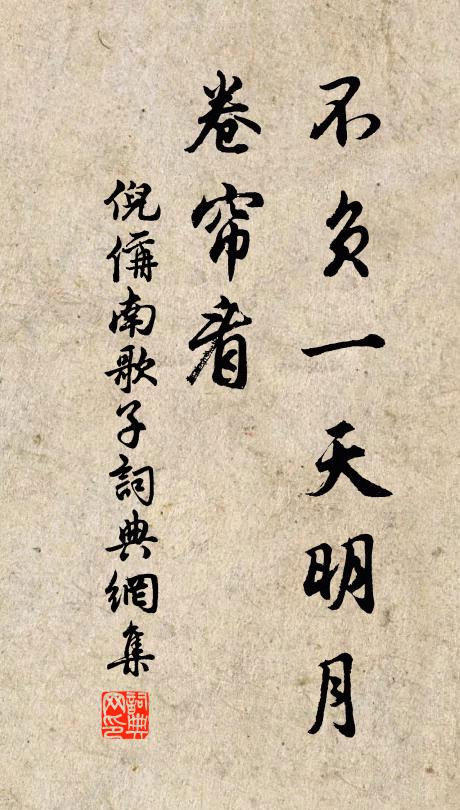 不负一天明月
卷帘看
倪偁南歌子詞典網集
詞典
网印